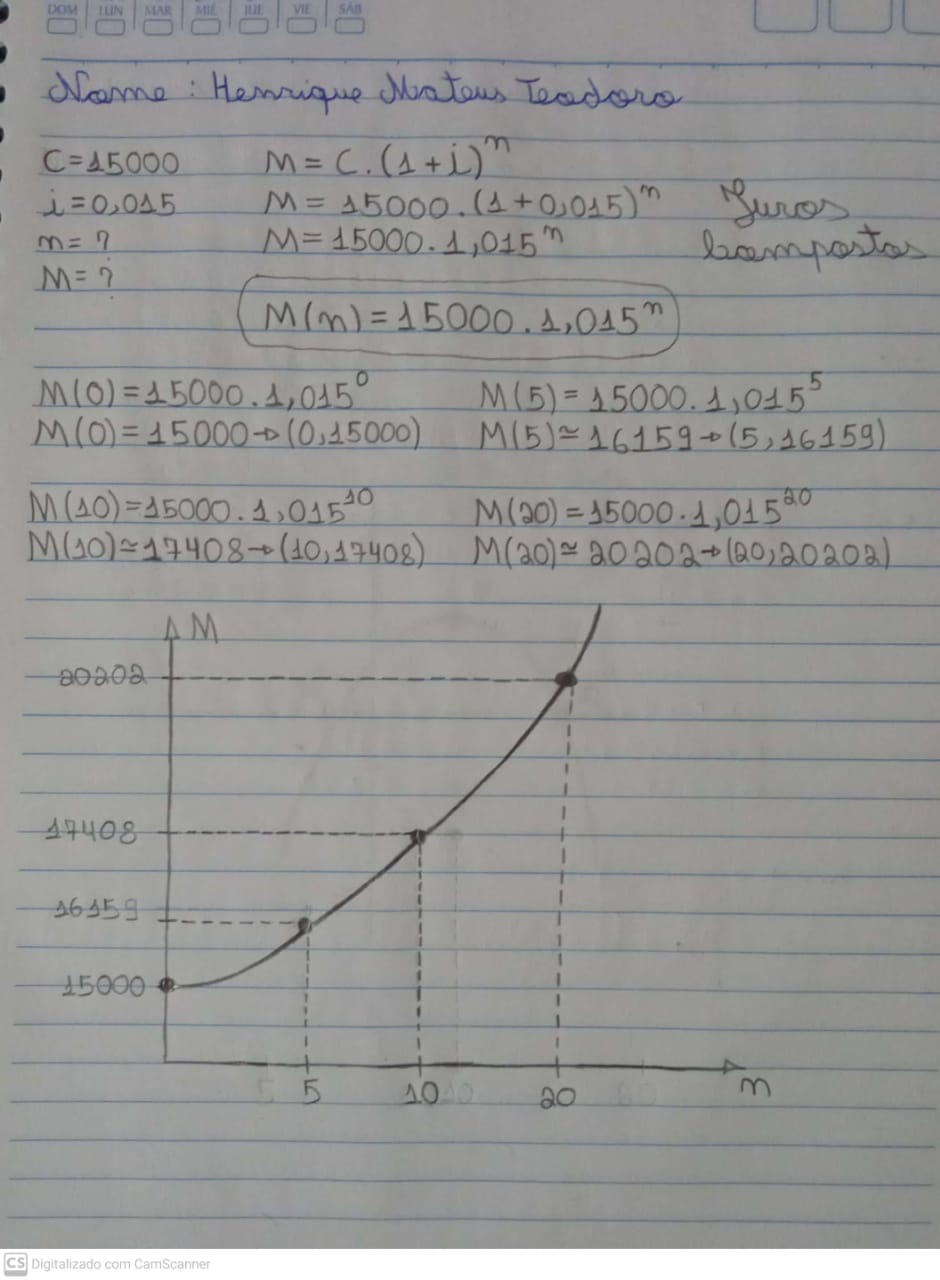 DOM LUN MAR MIÉ JUE VIE SÁB
Nome : Henrique Mateus Teodoro
C=15000 M = C.(1+i)^n
i=0,015 M = 15000.(1+0,015)^n Juros
n= ? M=15000.1,015^n Compostos
M= ?
M(n)=15000.1,015^n
M(0)=15000.1,015^0 M(5)=15000.1,015^5
M(0)=15000→(0,15000) M(5)≃16159→(5,16159)
M(10)=15000.1,015^10 M(20)=15000.1,015^20
M(10)≃17408→(10,17408) M(20)≃20202→(20,20202)
M
20202
17408
16159
15000
5 10 20 n
CS Digitalizado com CamScanner